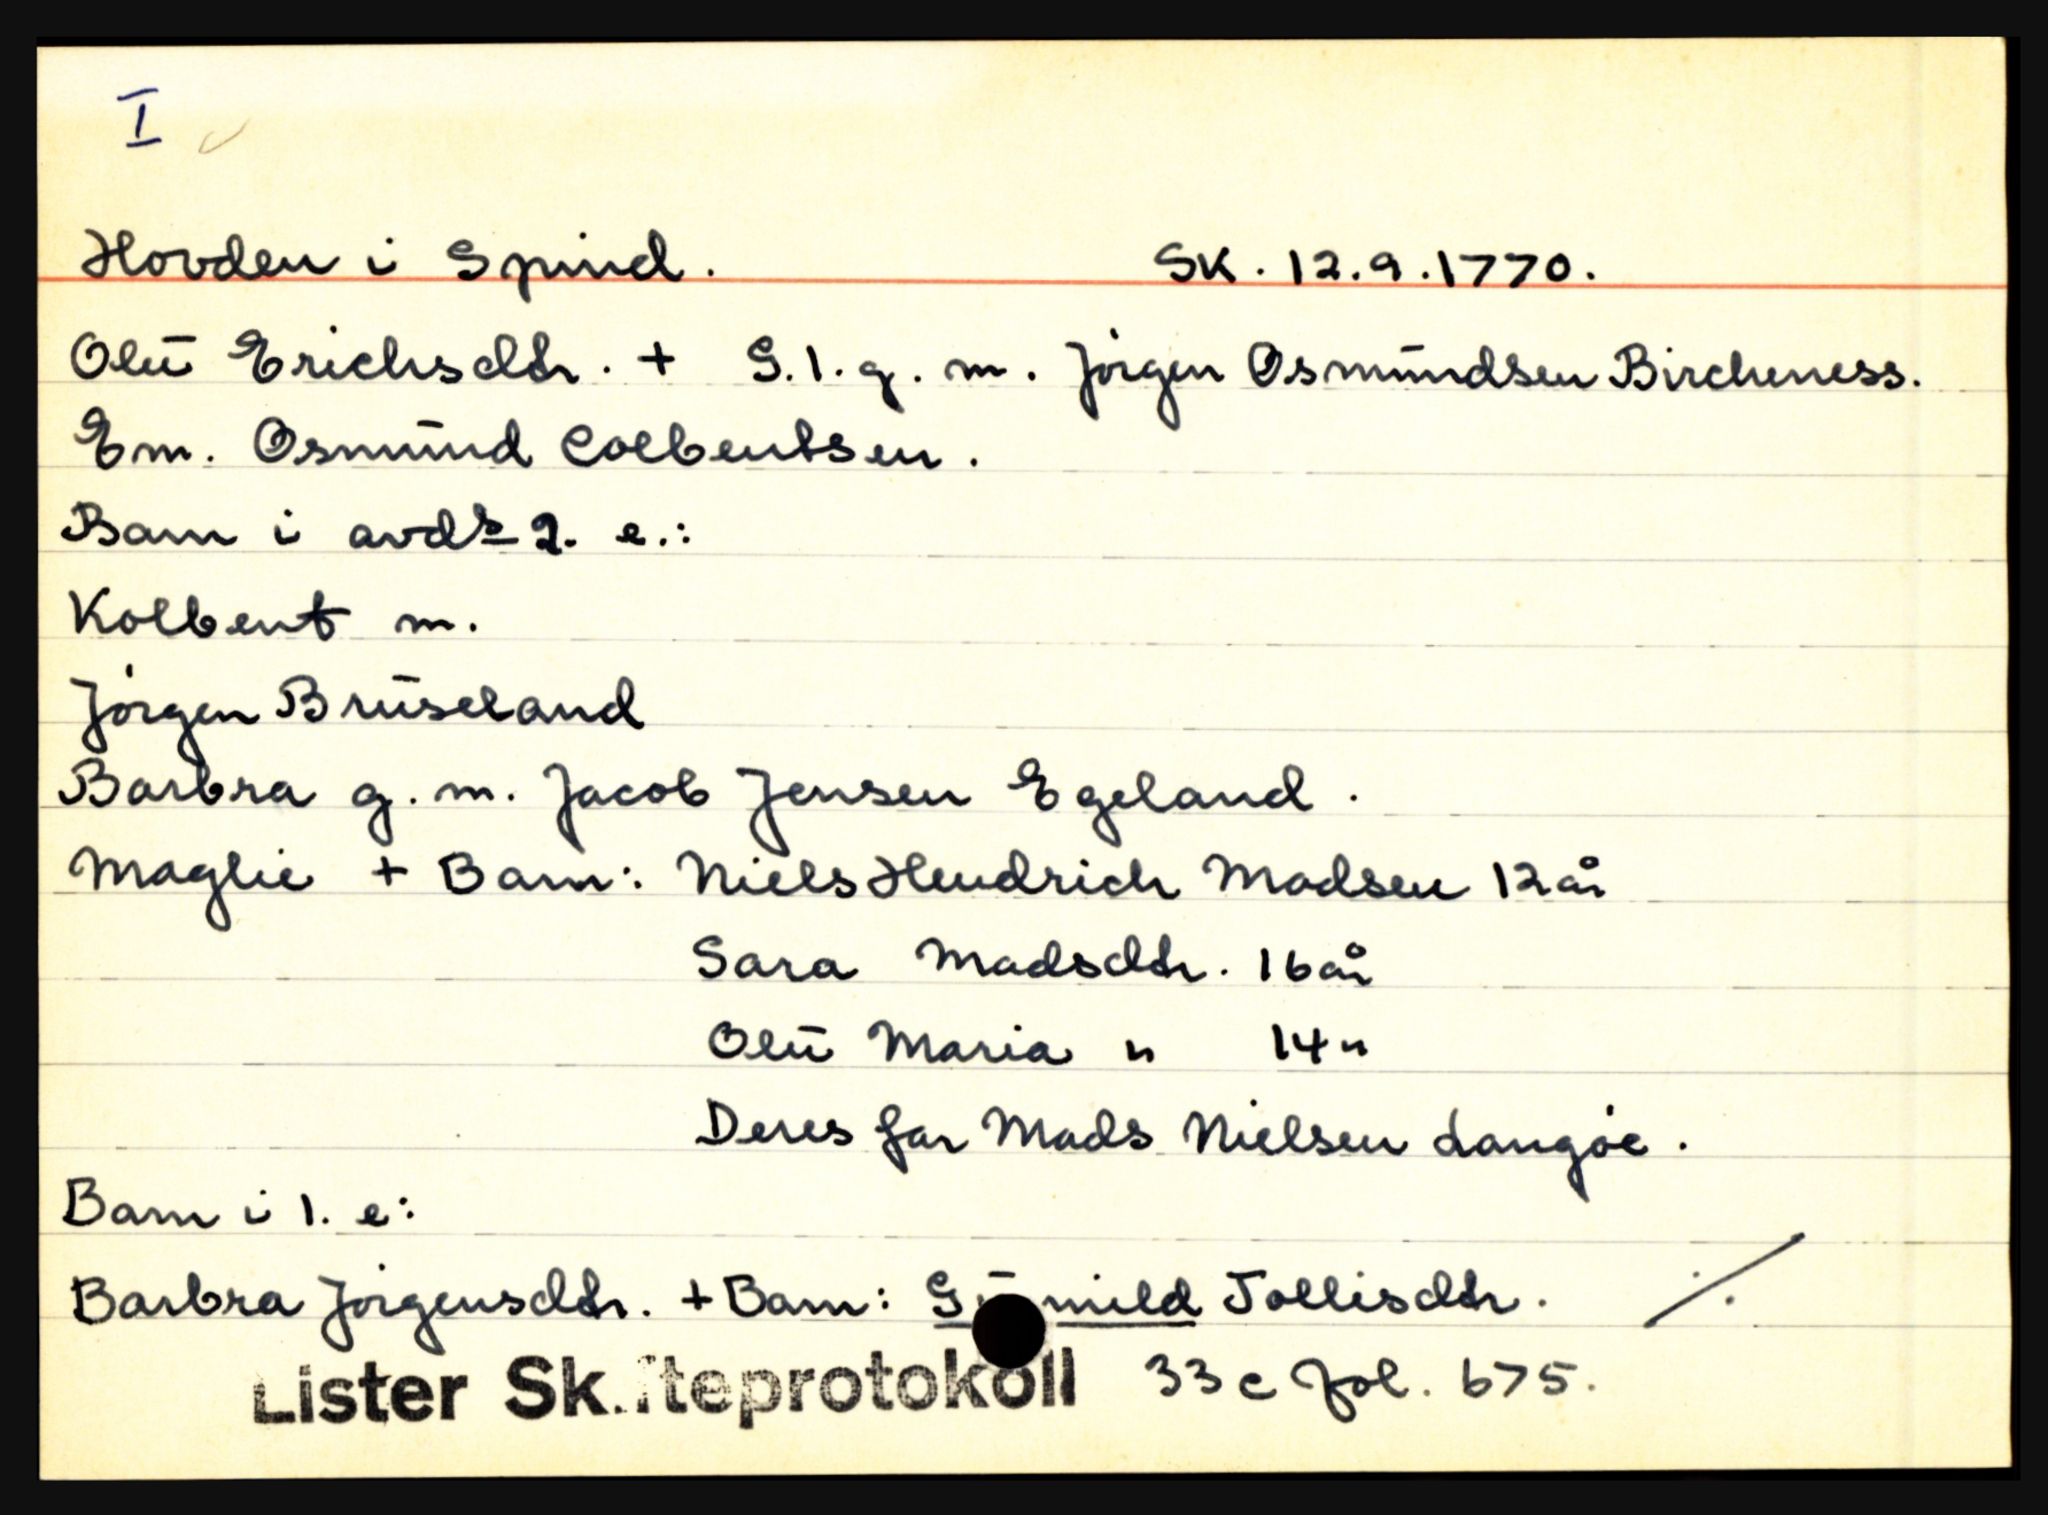 I
Hovden i Spind. SK. 12.9.1770.
Olü Erichsdtr. + G.1.g. m. Jörgen Osmündsen Bircheness.
Em. Osmünd Colbentsen.
Barn i avds 2. e.:
Kolbent m.
Jörgen Brüseland
Barbra g. m. Jacob Jensen Egeland.
Maglie + Barn: Niels Hendrich Madsen 12 år
Sara Madsdtr. 16 år
Olü Maria " 14 "
Deres far Mads Nielsen Langöe.
Barn i 1. e:
Barbra Jörgensdtr. + Barn: Tollisdtr. ./.
Lister Skifteprotokoll 33 c fol. 675.